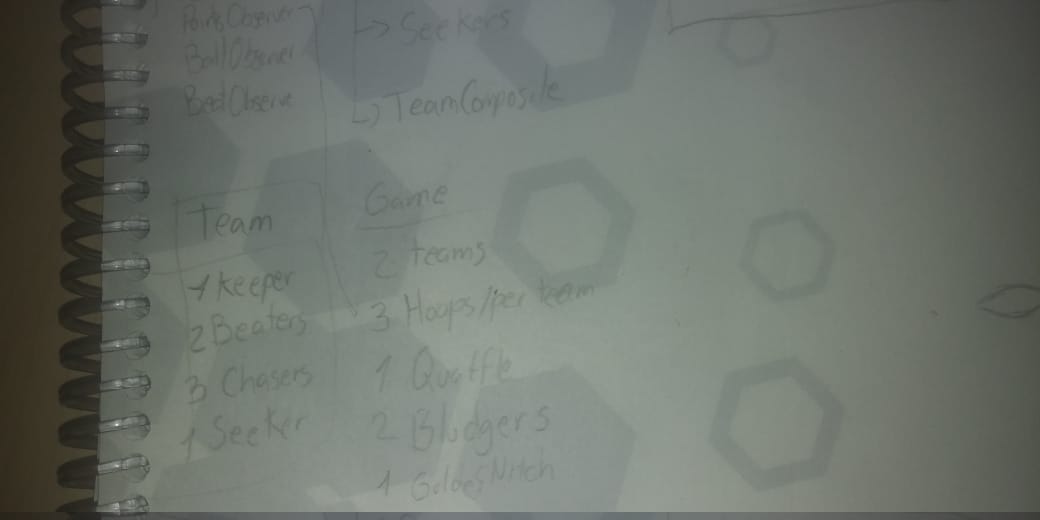 Points Observer
Ball Observer
Beat Observe
→ Seekers
↳ TeamComposite
Team
1 Keeper
2 Beaters
3 Chasers
1 Seeker
Game
2 teams
3 Hoops/per team
1 Quaffle
2 Bludgers
1 GoldesNitch